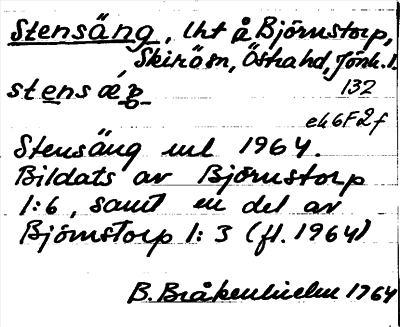 Stensäng, lht å Björnstorp,
Skirö sn, Östra hd, Jönk. l.
stens æ̂ŋ 132
ek 6F2f
Stensäng enl 1964.
Bildats av Björnstorp
1:6, samt en del av
Björnstorp 1:3 (fl. 1964)
B. Bråkenhielm 1964